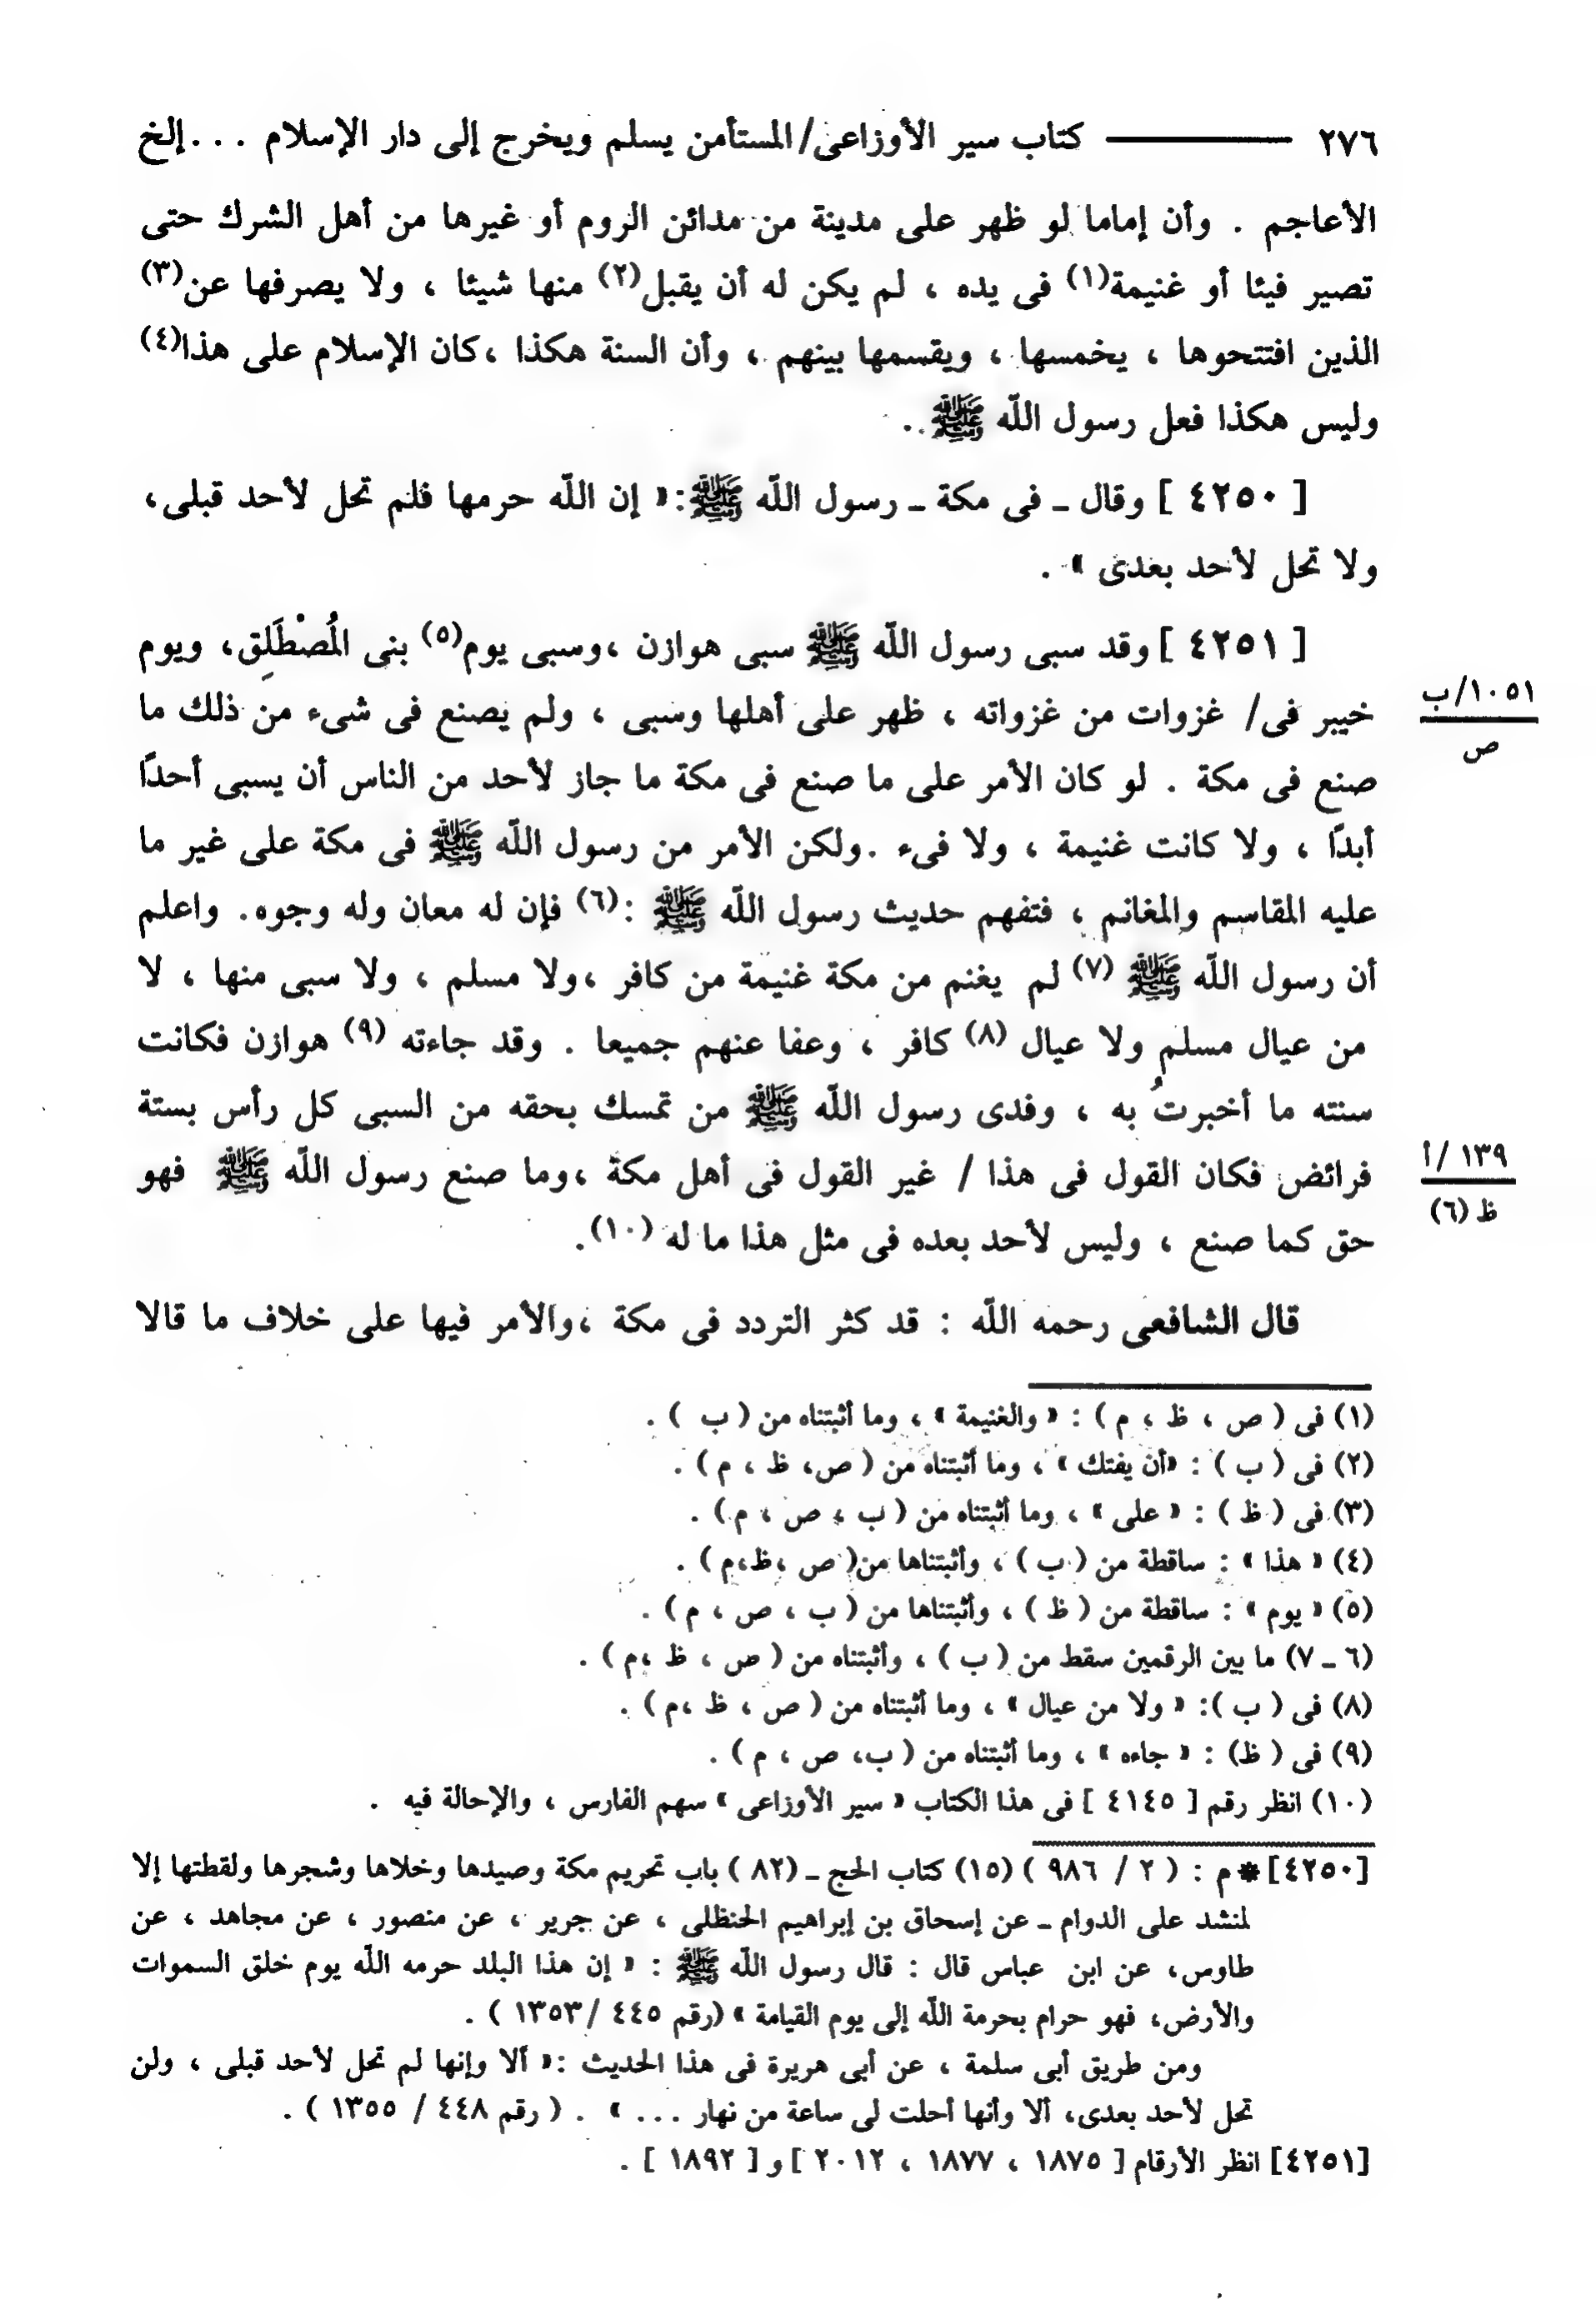 ٢٧٦ ــــــــــ كتاب سير الأوزاعى/المستأمن يسلم ويخرج إلى دار الإسلام ...إلخ
الأعاجم . وأن إماما لو ظهر على مدينة من مدائن الروم أو غيرها من أهل الشرك حتى
تصير فيئا أو غنيمة(١) فى يده ، لم يكن له أن يقبل(٢) منها شيئا ، ولا يصرفها عن(٣)
الذين افتتحوها ، يخمسها ، ويقسمها بينهم ، وأن السنة هكذا ،كان الإسلام على هذا(٤)
وليس هكذا فعل رسول الله ﷺ .
[ ٤٢٥٠ ] وقال ـ فى مكة ـ رسول الله ﷺ:« إن الله حرمها فلم تحل لأحد قبلى،
ولا تحل لأحد بعدى » .
[ ٤٢٥١ ] وقد سبى رسول الله ﷺ سبى هوازن ،وسبى يوم(٥) بنى المُصْطَلِق، ويوم
١٠٥١/ب
خيبر فى/ غزوات من غزواته ، ظهر على أهلها وسبى ، ولم يصنع فى شىء من ذلك ما
ص
صنع فى مكة . لو كان الأمر على ما صنع فى مكة ما جاز لأحد من الناس أن يسبى أحدًا
أبدًا ، ولا كانت غنيمة ، ولا فىء .ولكن الأمر من رسول الله ﷺ فى مكة على غير ما
عليه المقاسم والمغانم ، فتفهم حديث رسول الله ﷺ :(٦) فإن له معان وله وجوه. واعلم
أن رسول الله ﷺ (٧) لم يغنم من مكة غنيمة من كافر ،ولا مسلم ، ولا سبى منها ، لا
من عيال مسلم ولا عيال (٨) كافر ، وعفا عنهم جميعا . وقد جاءته (٩) هوازن فكانت
سنته ما أخبرتُ به ، وفدى رسول الله ﷺ من تمسك بحقه من السبى كل رأس بستة
١٣٩ /أ
فرائض فكان القول فى هذا / غير القول فى أهل مكة ،وما صنع رسول الله ﷺ فهو
ظ (٦)
حق كما صنع ، وليس لأحد بعده فى مثل هذا ما له (١٠).
قال الشافعى رحمه الله : قد كثر التردد فى مكة ،والأمر فيها على خلاف ما قالا
(١) فى ( ص ، ظ ، م ) : « والغنيمة » ، وما أثبتناه من ( ب ) .
(٢) فى ( ب ) : «أن يفتك » ، وما أثبتناه من ( ص، ظ ، م ) .
(٣) فى ( ظ ) : « على » ، وما أثبتناه من ( ب ، ص ، م ) .
(٤) « هذا » : ساقطة من ( ب ) ، وأثبتناها من( ص ،ظ،م ) .
(٥) « يوم » : ساقطة من ( ظ ) ، وأثبتناها من ( ب ، ص ، م ) .
(٦ ـ ٧) ما بين الرقمين سقط من ( ب ) ، وأثبتناه من ( ص ، ظ ،م ) .
(٨) فى ( ب ): « ولا من عيال » ، وما أثبتناه من ( ص ، ظ ،م ) .
(٩) فى ( ظ) : « جاءه » ، وما أثبتناه من ( ب، ص ، م ) .
(١٠) انظر رقم [ ٤١٤٥ ] فى هذا الكتاب « سير الأوزاعى » سهم الفارس ، والإحالة فيه .
[٤٢٥٠] * م : ( ٢ / ٩٨٦ ) (١٥) كتاب الحج ـ (٨٢ ) باب تحريم مكة وصيدها وخلاها وشجرها ولقطتها إلا
لمنشد على الدوام ـ عن إسحاق بن إبراهيم الحنظلى ، عن جرير ، عن منصور ، عن مجاهد ، عن
طاوس، عن ابن عباس قال : قال رسول الله ﷺ : « إن هذا البلد حرمه الله يوم خلق السموات
والأرض، فهو حرام بحرمة الله إلى يوم القيامة » (رقم ٤٤٥ /١٣٥٣ ) .
ومن طريق أبى سلمة ، عن أبى هريرة فى هذا الحديث :« ألا وإنها لم تحل لأحد قبلى ، ولن
تحل لأحد بعدى، ألا وأنها أحلت لى ساعة من نهار ... » . ( رقم ٤٤٨ / ١٣٥٥ ) .
[٤٢٥١] انظر الأرقام [ ١٨٧٥ ، ١٨٧٧ ، ٢٠١٢ ] و [ ١٨٩٢ ] .